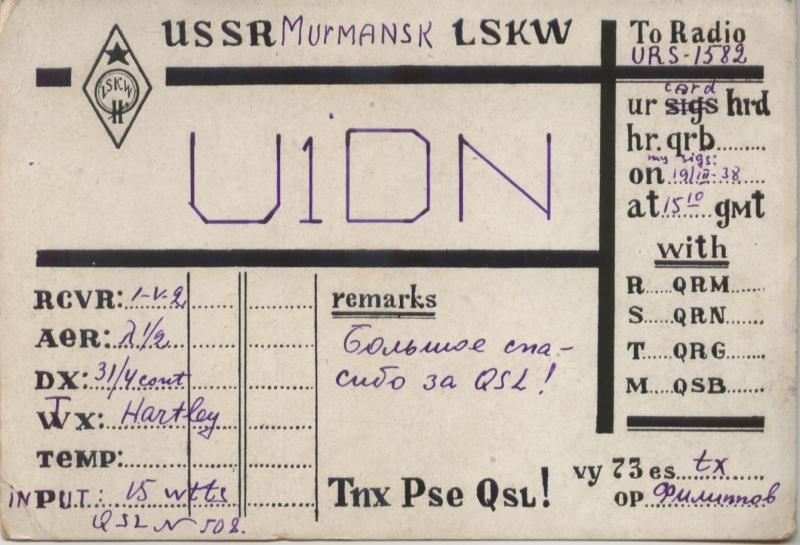 USSR MURMANSK LSKW
LSKW
U1DN
To Radio
URS-1582
card
ur sigs hrd
hr. qrb
my sigs:
on 19/III-38
at 15 10 GMT
with
R QRM
S QRN
T QRG
M QSB
RCVR: 1-V-2
AER: λ 1/2
DX: 31/4 cont
TX: Hartley
TEMP:
INPUT: 15 wtts
QSL N 508.
remarks
Большое спа-
сибо за QSL!
Tnx Pse QSL!
vy 73 es tx
OP Филиппов